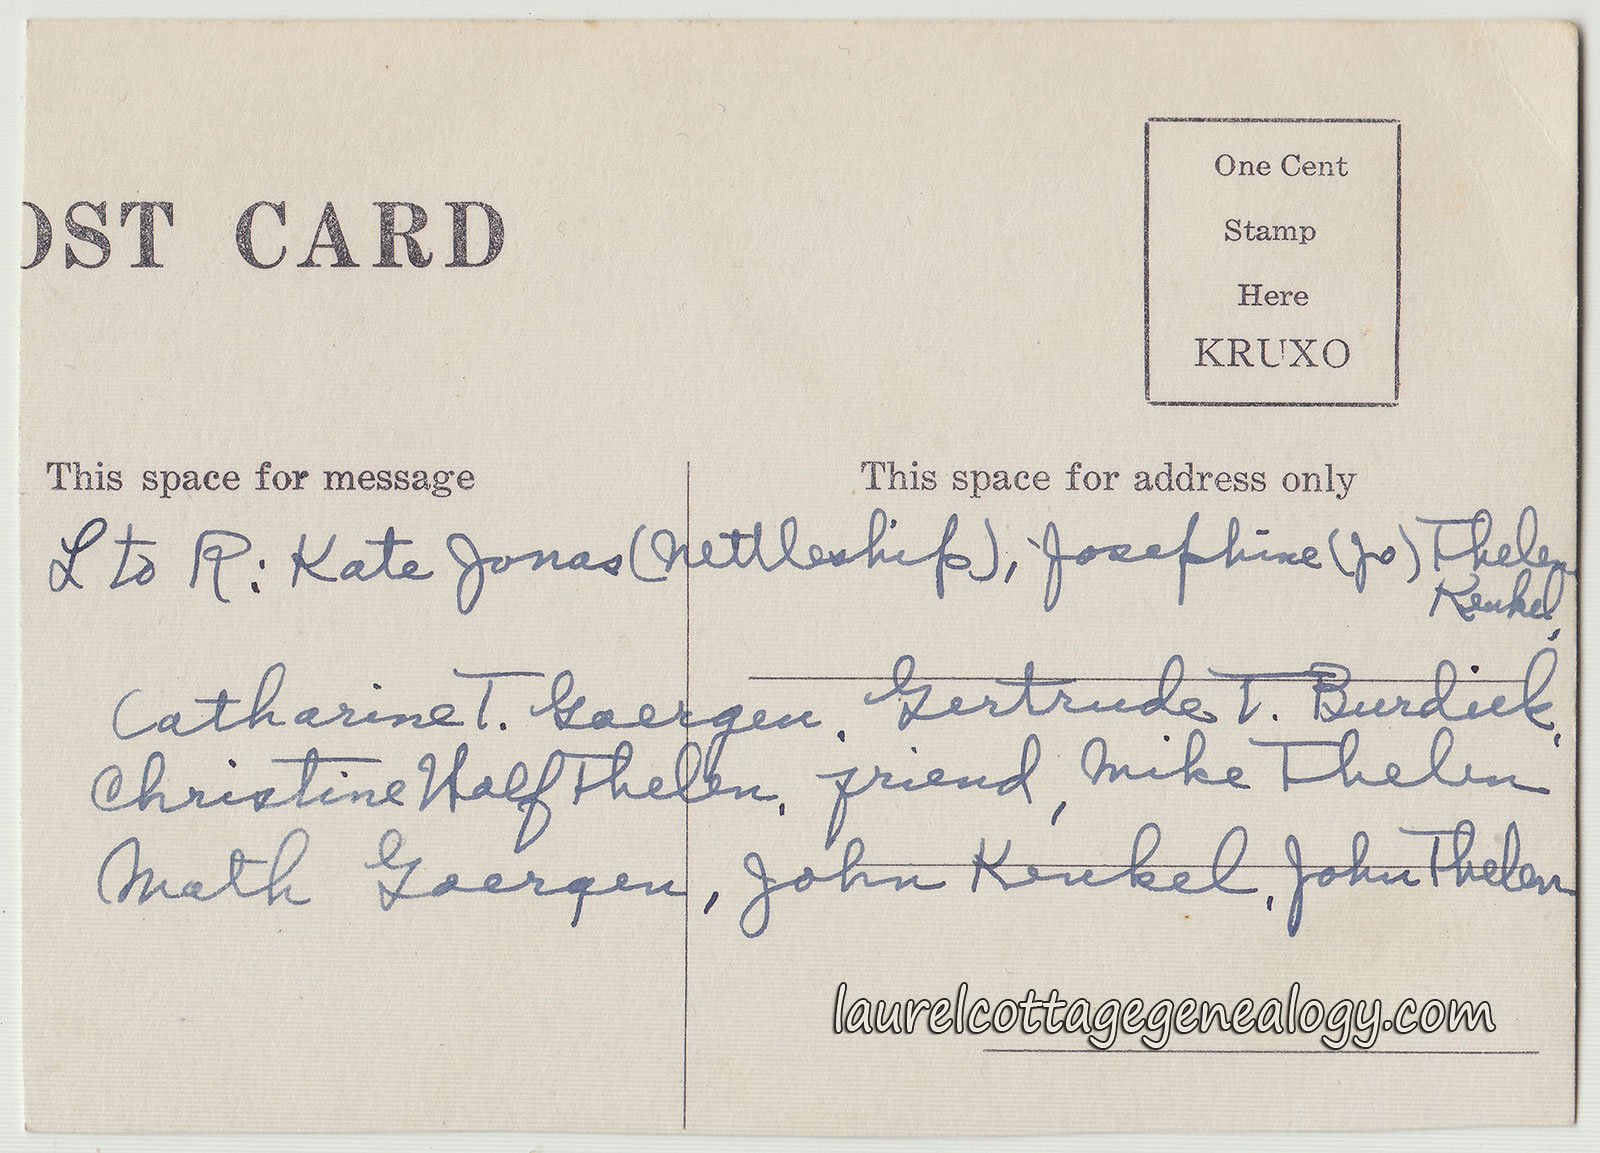 OST CARD
One Cent
Stamp
Here
KRUXO
This space for message
This space for address only
L to R: Kate Jonas (Nettleship), Josephine (Jo) Thelen
Kenkel,
Catharine T. Goergen, Gertrude T. Burdick,
Christine Half Thelen, friend, Mike Thelen
Math Goergen, John Kenkel, John Thelen
laurelcottagegenealogy.com